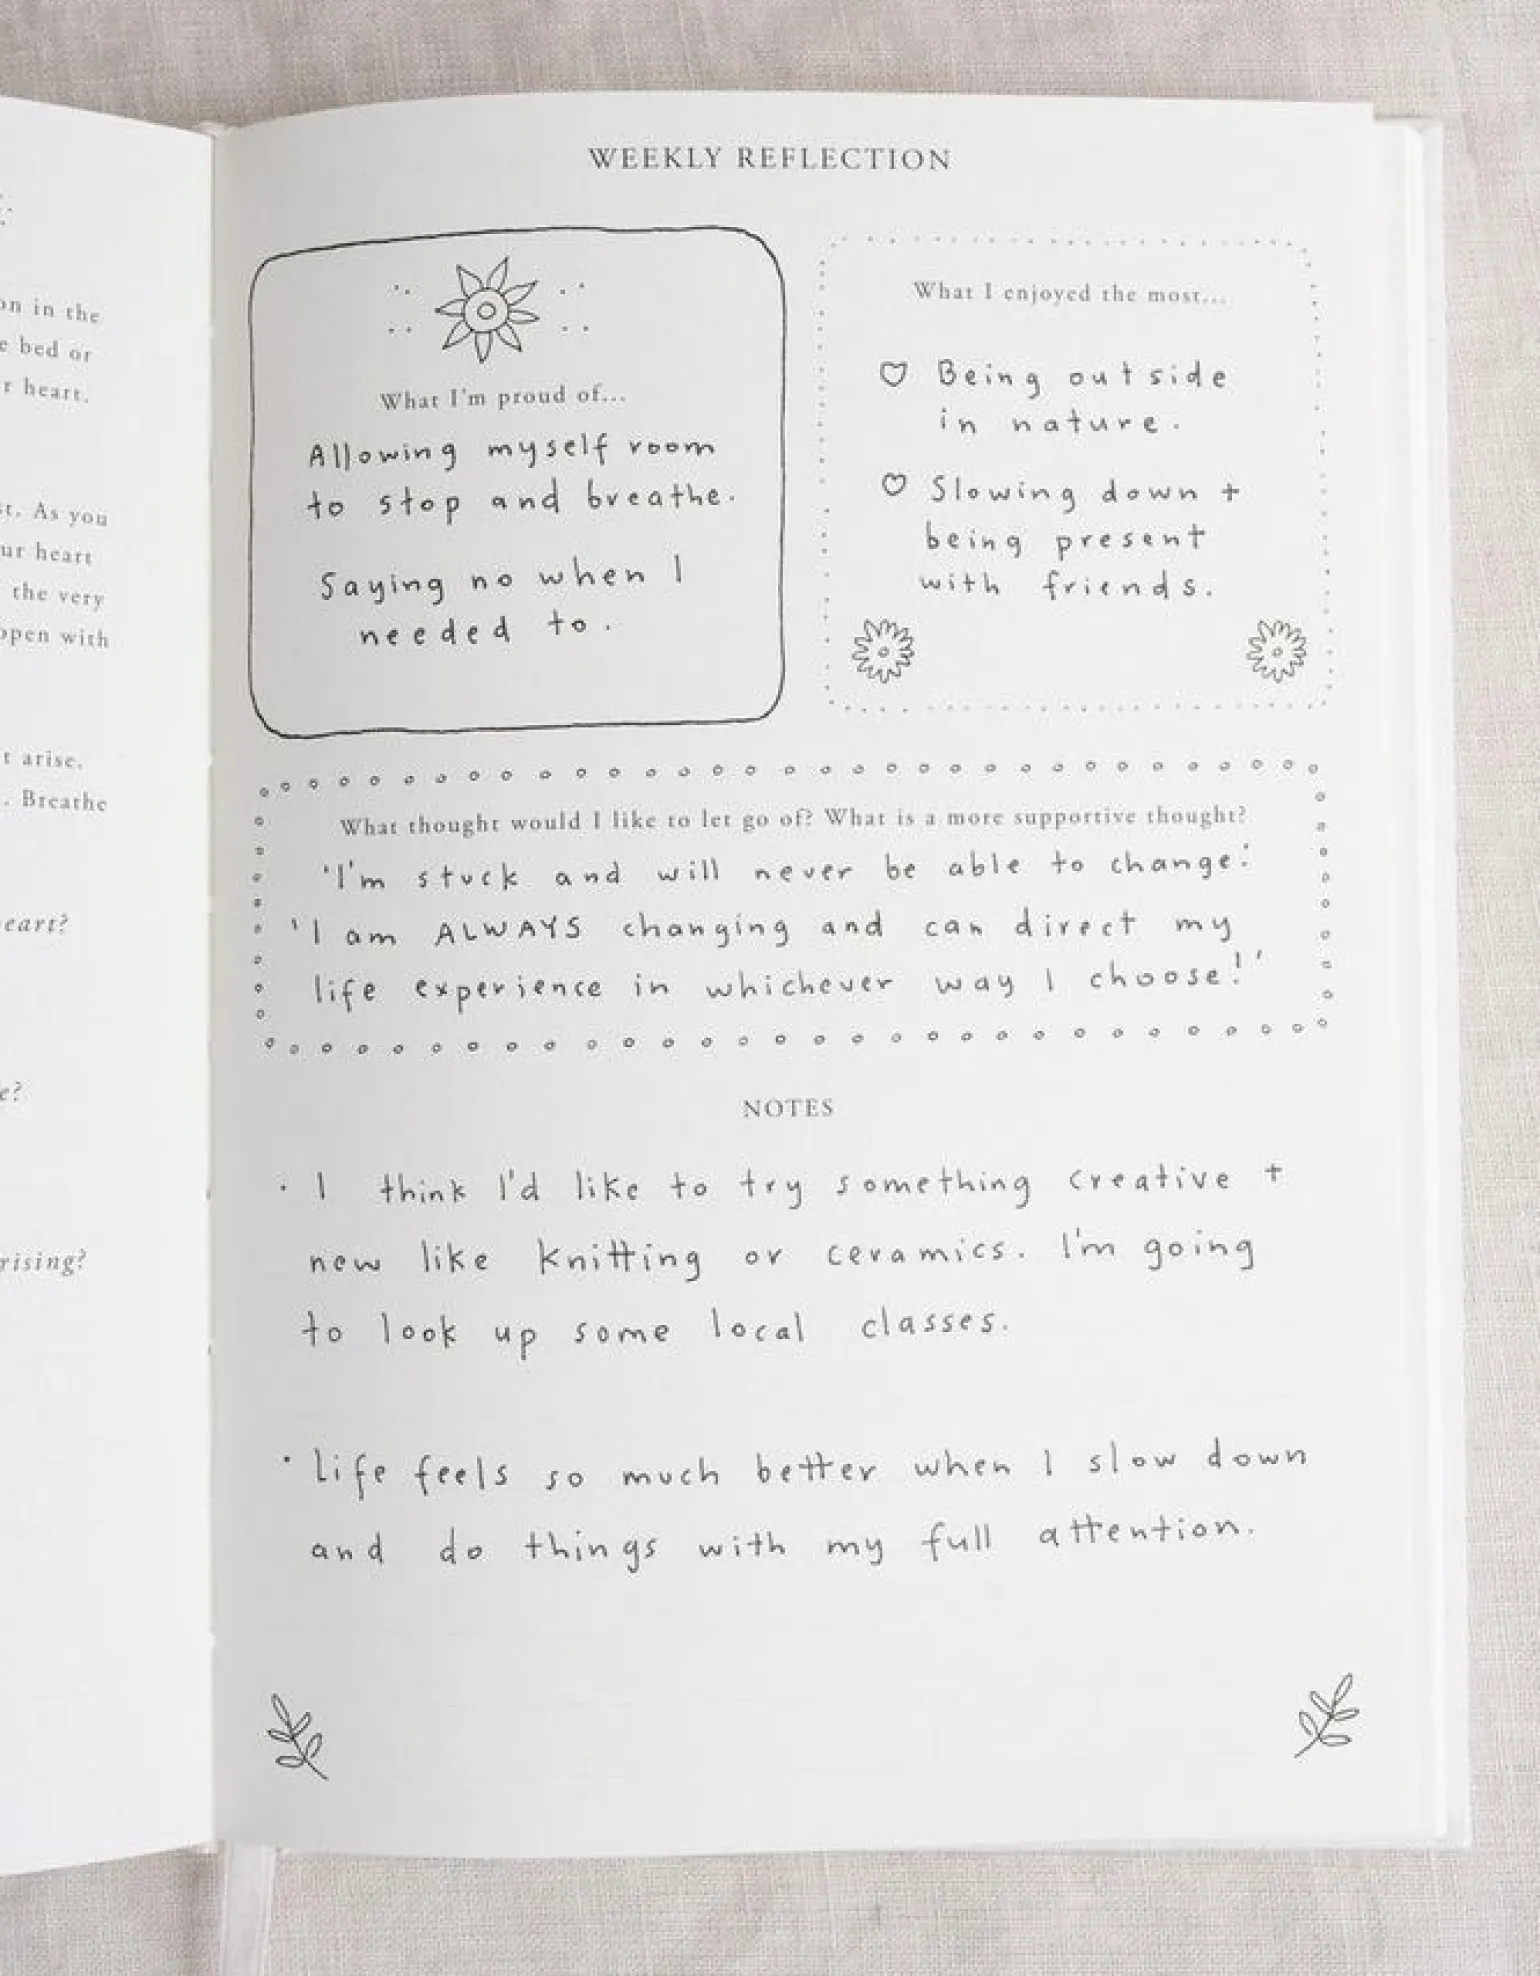 on in the
e bed or
r heart.
st. As you
ur heart
the very
open with
t arise.
. Breathe
eart?
e?
rising?
WEEKLY REFLECTION
What I'm proud of...
Allowing myself room
to stop and breathe.
Saying no when I
needed to.
What I enjoyed the most...
♡ Being outside
in nature.
♡ Slowing down +
being present
with friends.
What thought would I like to let go of? What is a more supportive thought?
'I'm stuck and will never be able to change.'
'I am ALWAYS changing and can direct my
life experience in whichever way I choose!'
NOTES
· I think I'd like to try something creative +
new like knitting or ceramics. I'm going
to look up some local classes.
· Life feels so much better when I slow down
and do things with my full attention.